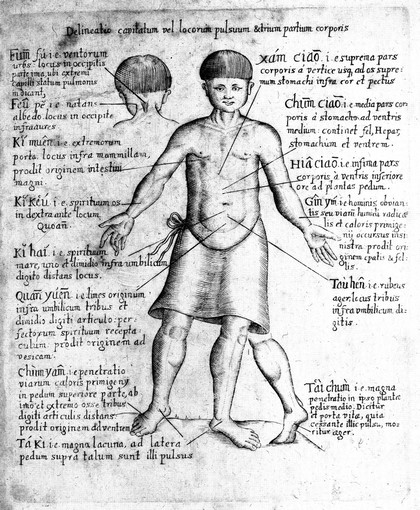 Delineatio capitatum vel locorum pulsuum & trium partium corporis
Fum fu i.e. ventorum
urbs: locus in occipitis
parte ima, ubi extremi
capitis statum pulmonis
indicant,
Feu pe i.e. natans
albedo. locus in occipite
infra aures
Ki muen i.e. extremorum
porta. locus infra mammillam,
prodit originem intestini
magni.
Ki keu i.e. spirituum os
in dextra ante locum,
Quoan.
Ki hai i.e. spirituum
mare, uno et dimidio infra umbilicum
digito distans locus.
Quan yuen i.e. limes originum
infra umbilicum tribus et
dimidio digiti articulo: per-
fectorum spirituum recepta
culum. prodit originem ad
vesicam.
Chim yam i.e. penetratio
viarum caloris primigenij
in pedum superiore parte, ab
imo et extremo osse tribus
digiti articulis distans
prodit originem ad ventrem
Ta Ki i.e. magna lacuna, ad latera
pedum supra talum sunt illi pulsus
xam ciao. i.e. suprema pars
corporis à vertice usq, ad os supre
mum stomachi infra cor et pectus
Chum ciao. i.e. media pars cor
poris à stomacho ad ventris
medium: continet fel, Hepar,
stomachum et ventrem.
Hia ciao i.e. infima pars
corporis à ventris inferiore
ore ad plantas pedum.
Gin ym. i.e. hominis obvian
tis seu viam humidi radica
lis et caloris primige
nij occursus
nistra prodit ori
ginem epatis & fel
lis.
Tau hen i.e. rubeus
ager. locus tribus
infra umbilicum di-
gitis.
Tai chum i.e. magna
penetratio in ipso planta
pedis medio. Dicitur
et porta vitæ, quia
cessante illic pulsu, mo
ritur æger.